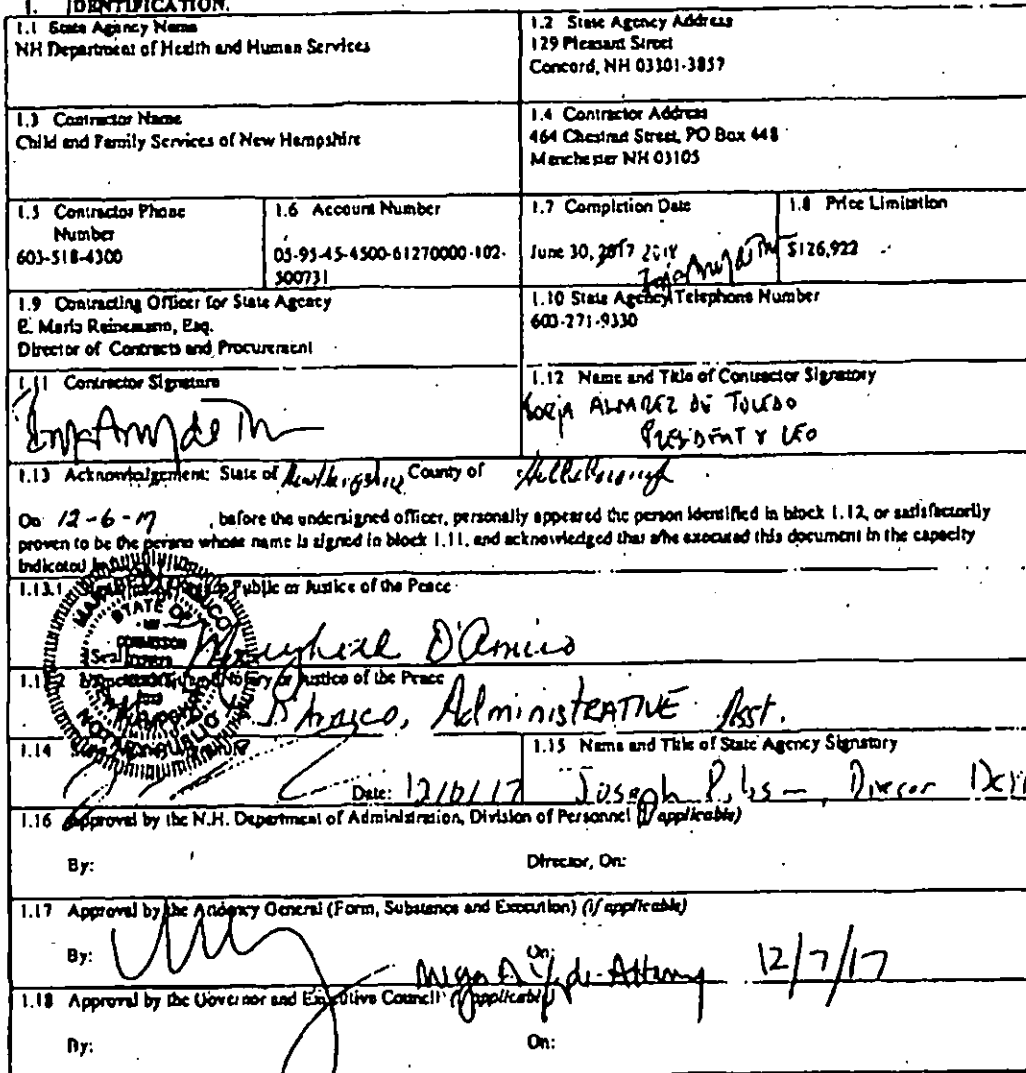 1. IDENTIFICATION.
1.1 State Agency Name
NH Department of Health and Human Services
1.2 State Agency Address
129 Pleasant Street
Concord, NH 03301-3857
1.3 Contractor Name
Child and Family Services of New Hampshire
1.4 Contractor Address
464 Chestnut Street, PO Box 448
Manchester NH 03105
1.5 Contractor Phone
Number
603-518-4300
1.6 Account Number
05-95-45-4500-61270000-102-
500731
1.7 Completion Date
June 30, 2017 2018
1.8 Price Limitation
$126,922
1.9 Contracting Officer for State Agency
E. Maria Reinemann, Esq.
Director of Contracts and Procurement
1.10 State Agency Telephone Number
603-271-9330
1.11 Contractor Signature
1.12 Name and Title of Contractor Signatory
Borja ALVAREZ DE TOLEDO
PRESIDENT & CEO
1.13 Acknowledgement: State of New Hampshire County of Hillsborough
On 12-6-17, before the undersigned officer, personally appeared the person identified in block 1.12, or satisfactorily
proven to be the person whose name is signed in block 1.11, and acknowledged that s/he executed this document in the capacity
indicated in
1.13.1 Public or Justice of the Peace
STATE OF
COMMISSION
EXPIRES
NOTARY PUBLIC
[Seal]
D'Amico
1.13.2 Notary or Justice of the Peace
D'Amico, AdministRATIVE Asst.
1.14
Date: 12/6/17
1.15 Name and Title of State Agency Signatory
Joseph
1.16 Approval by the N.H. Department of Administration, Division of Personnel (if applicable)
By:
Director, On:
1.17 Approval by the Attorney General (Form, Substance and Execution) (if applicable)
By:
On:
12/7/17
1.18 Approval by the Governor and Executive Council (if applicable)
By:
On: